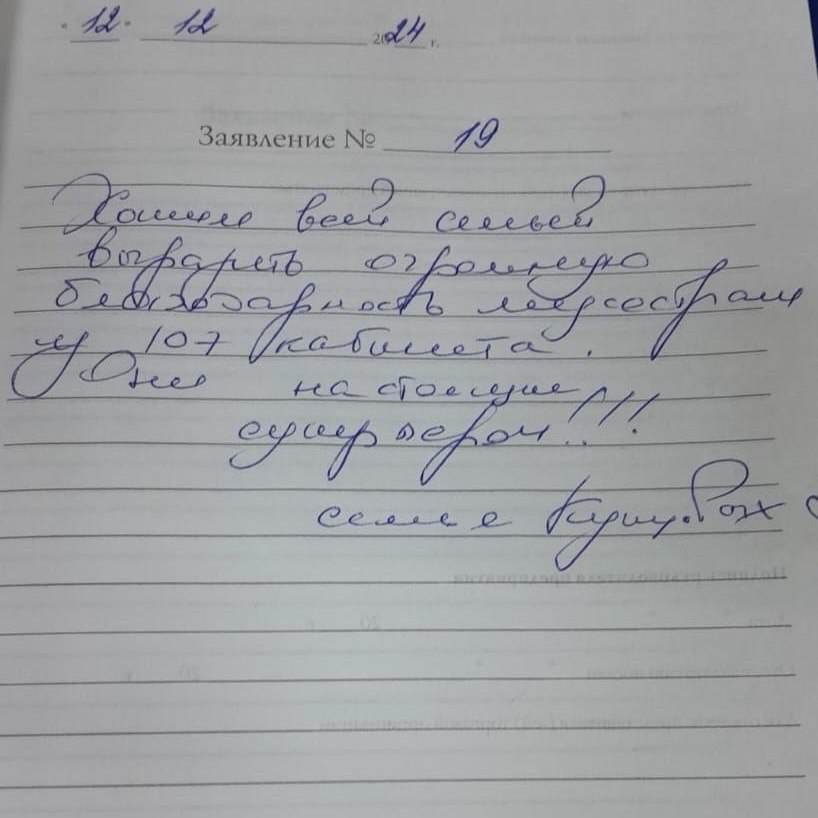 "12" 12 2024 г.
Заявление № 19
Хотим всей семьей
выразить огромную
благодарность медсестрам
из 107 кабинета.
Они настоящие
супергерои!!!
семья